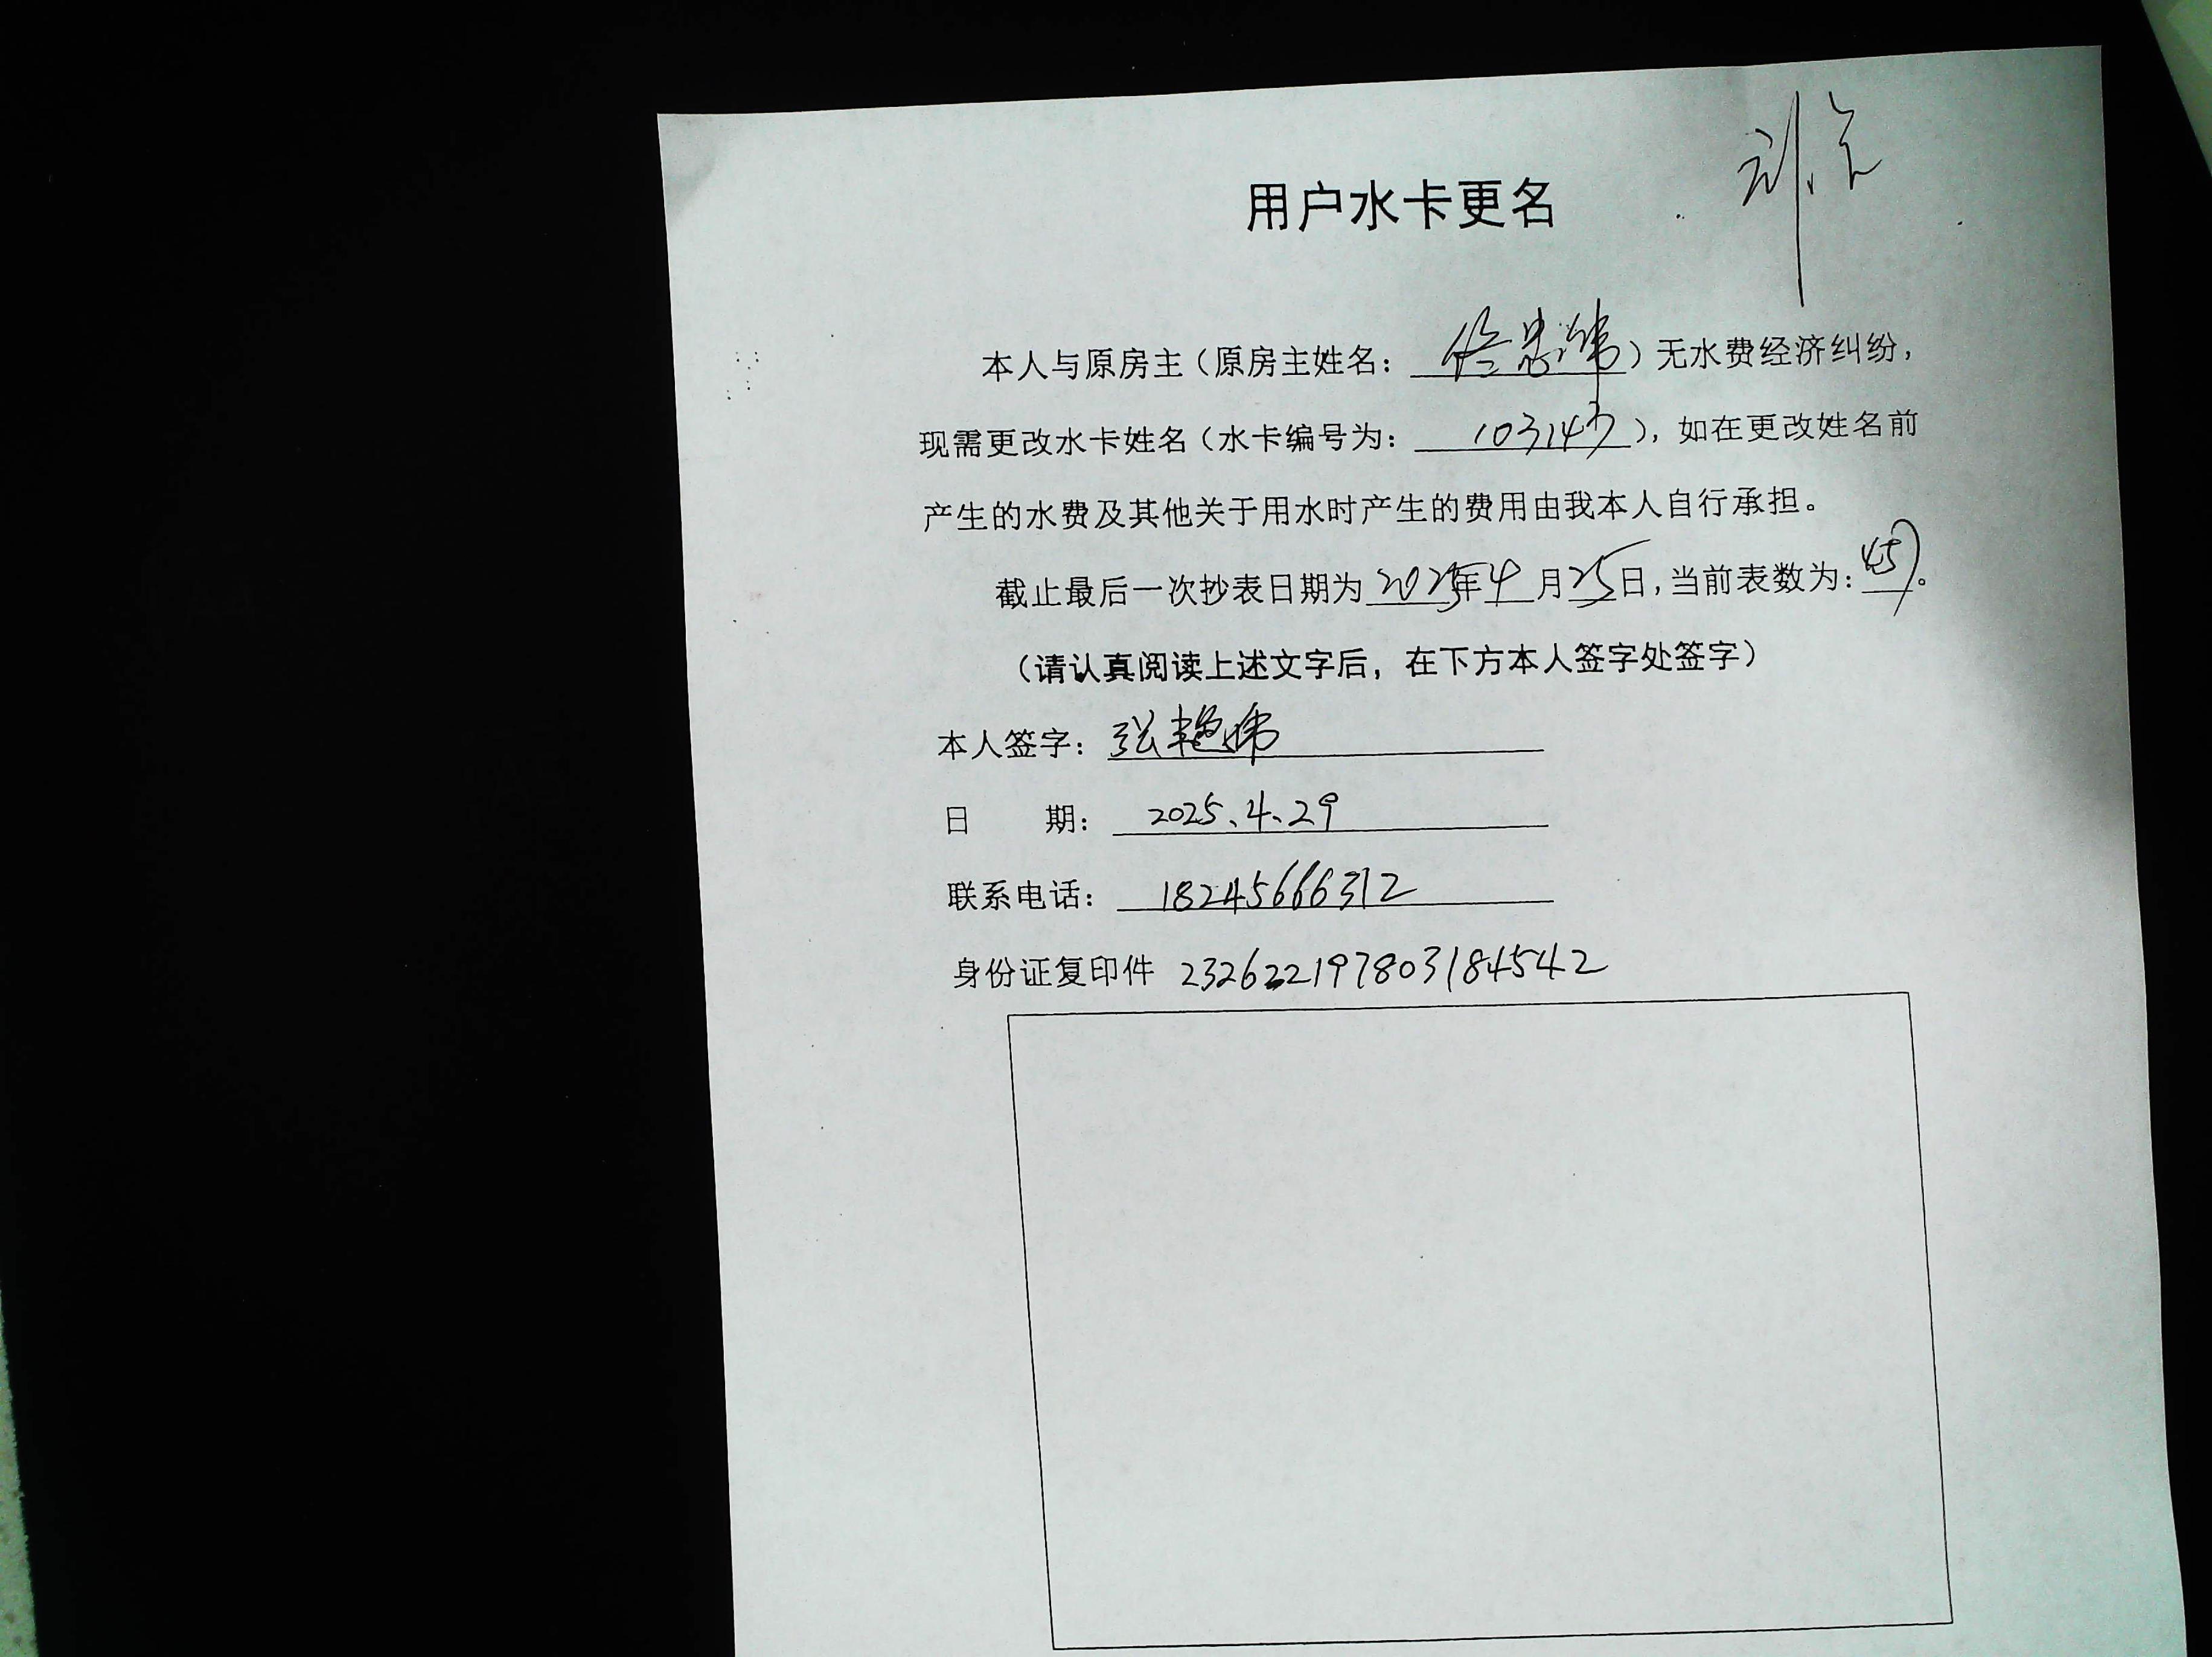 用户水卡更名
本人与原房主（原房主姓名：佟忠伟）无水费经济纠纷，
现需更改水卡姓名（水卡编号为：103143），如在更改姓名前
产生的水费及其他关于用水时产生的费用由我本人自行承担。
截止最后一次抄表日期为2025年4月25日，当前表数为：457。
（请认真阅读上述文字后，在下方本人签字处签字）
本人签字：张艳伟
日 期：2025.4.29
联系电话：18245666312
身份证复印件 232622197803184542